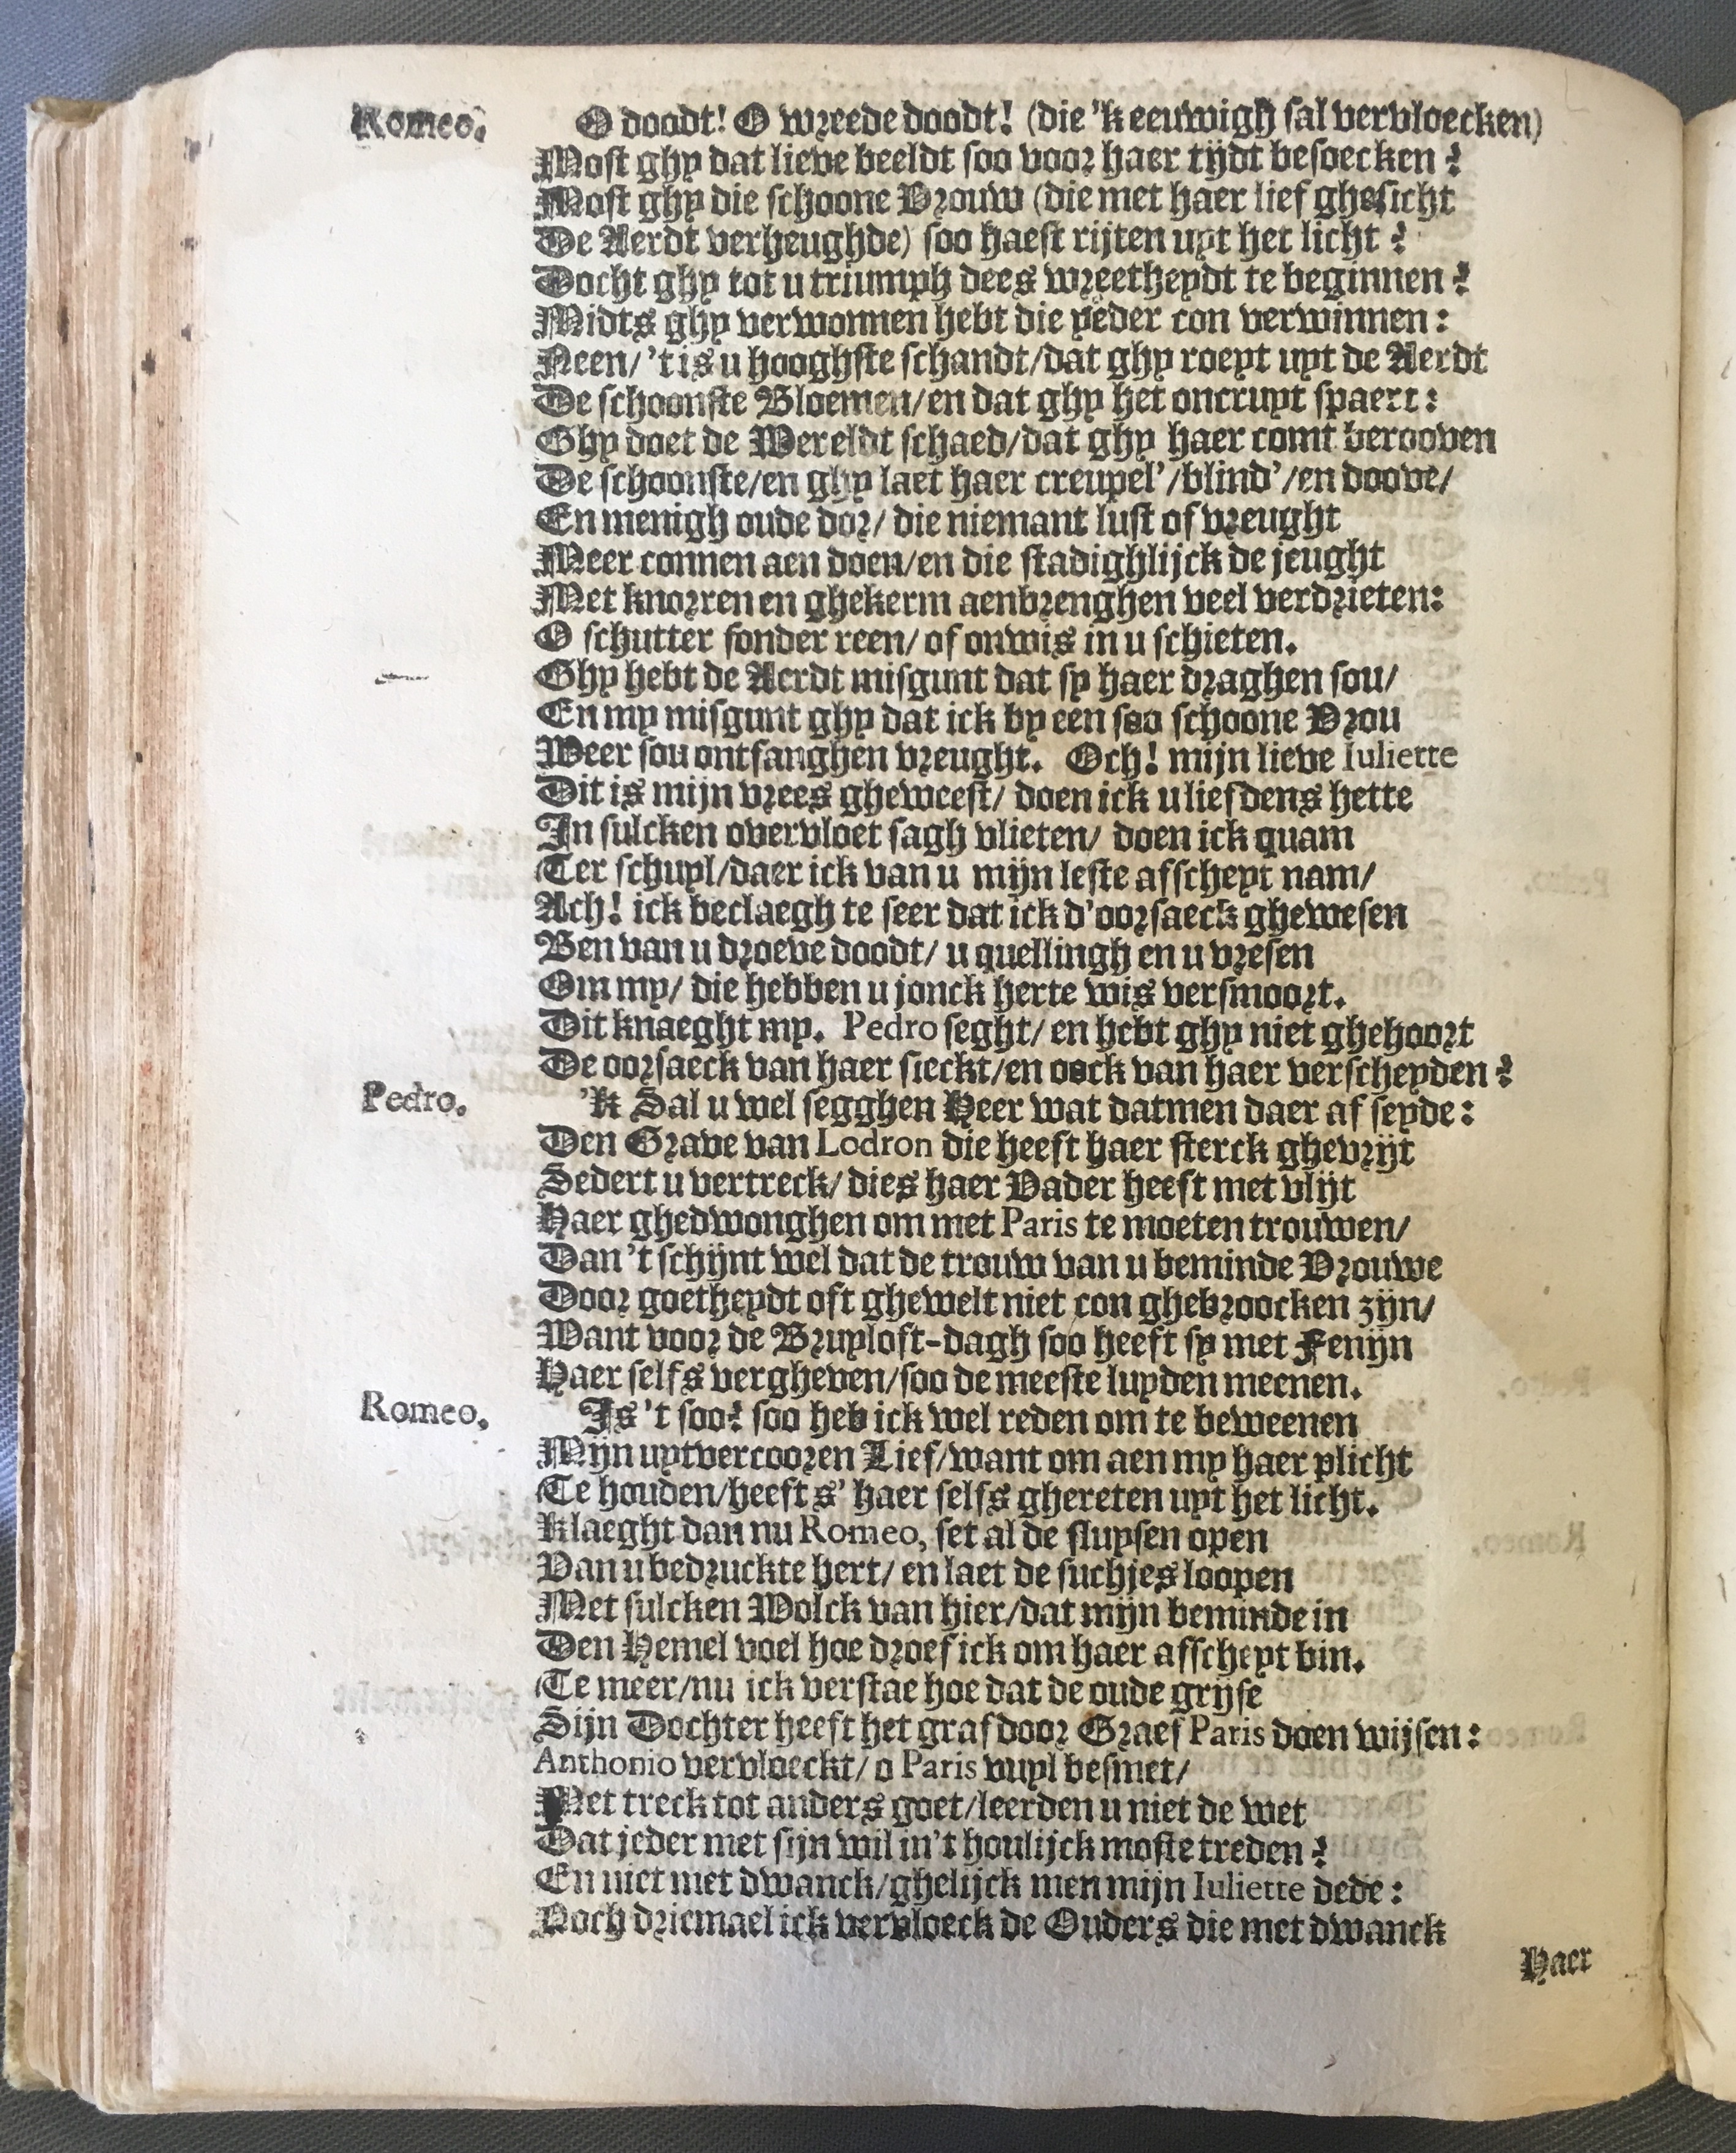 Romeo. O doodt! O wreede doodt! (die 'k eeuwigh sal vervloecken)
Most ghy dat lieve beeldt soo voor haer tijdt besoecken?
Most ghy die schoone Vrouw (die met haer lief ghesicht
De Aerdt verheughde) soo haest rijten uyt het licht?
Docht ghy tot u triumph dees wreetheydt te beginnen?
Midts ghy verwonnen hebt die yeder con verwinnen:
Neen/ 't is u hooghste schandt/dat ghy roept uyt de Aerdt
De schoonste Bloemen/en dat ghy het oncruyt spaert:
Ghy doet de Wereldt schaed/dat ghy haer comt berooven
De schoonste/en ghy laet haer creupel'/blind'/en doove/
En menigh oude dor/ die niemant lust of vreught
Meer connen aen doen/en die stadighlijck de jeught
Met knorren en ghekerm aenbrenghen veel verdrieten:
O schutter sonder reen/ of onwis in u schieten.
Ghy hebt de Aerdt misgunt dat sy haer draghen sou/
En my misgunt ghy dat ick by een soo schoone Vrou
Weer sou ontfanghen vreught. Och! mijn lieve Iuliette
Dit is mijn vrees gheweest/ doen ick u liefdens hette
In sulcken overvloet sagh vlieten/ doen ick quam
Ter schuyl/daer ick van u mijn leste afscheyt nam/
Ach! ick beclaegh te seer dat ick d'oorsaeck ghewesen
Ben van u droeve doodt/ u quellingh en u vresen
Om my/ die hebben u jonck herte wis versmoort.
Dit knaeght my. Pedro seght/ en hebt ghy niet ghehoort
De oorsaeck van haer sieckt/en oock van haer verscheyden?
Pedro. 'k Sal u wel segghen Heer wat datmen daer af seyde:
Den Grave van Lodron die heeft haer sterck ghevrijt
Sedert u vertreck/ dies haer Vader heeft met vlijt
Haer ghedwonghen om met Paris te moeten trouwen/
Dan 't schijnt wel dat de trouw van u beminde Vrouwe
Door goetheydt oft ghewelt niet con ghebroocken zijn/
Want voor de Bruyloft-dagh soo heeft sy met Fenijn
Haer selfs vergheven/soo de meeste luyden meenen.
Romeo. Is 't soo? soo heb ick wel reden om te beweenen
Mijn uytvercooren Lief/want om aen my haer plicht
Te houden/heeft s' haer selfs ghereten uyt het licht.
Klaeght dan nu Romeo, set al de sluysen open
Van u bedruckte hert/ en laet de suchjes loopen
Met sulcken Wolck van hier/dat mijn beminde in
Den Hemel voel hoe droef ick om haer afscheyt bin.
Te meer/nu ick verstae hoe dat de oude grijse
Sijn Dochter heeft het graf door Graef Paris doen wijsen:
Anthonio vervloeckt/ o Paris vuyl besmet/
Met treck tot anders goet/leerden u niet de wet
Dat jeder met sijn wil in't houlijck moste treden?
En niet met dwanck/ghelijck men mijn Iuliette dede:
Noch driemael ick vervloeck de Ouders die met dwanck
Haer